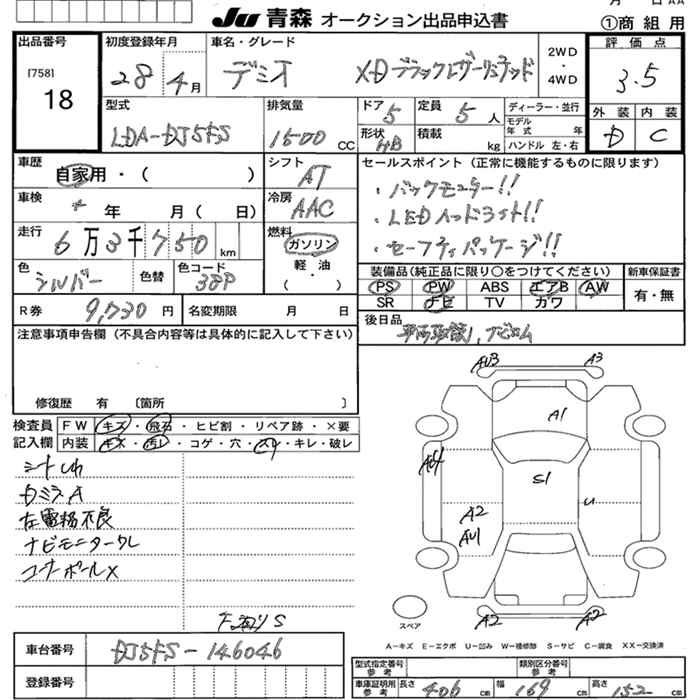 月 日 AA
JU 青森 オークション出品申込書
①商組用
出品番号
[758]
18
初度登録年月
28年4月
車名・グレード
デミオ XDブラックレザーリミテッド
2WD
・
4WD
評価点
3.5
外装 内装
D C
型式
LDA-DJ5FS
排気量
1500CC
ドア
5
定員
5人
形状
HB
積載
kg
ディーラー・並行
モデル
年式 年
ハンドル 左・右
車歴
自家用・( )
シフト
AT
セールスポイント(正常に機能するものに限ります)
・バックモニター!!
・LEDヘッドライト!!
・セーフティパッケージ!!
車検
年 月(日)
冷房
AAC
走行
6万3千750km
燃料
ガソリン
・
軽・油
( )
色
シルバー
色替
色コード
38P
装備品(純正品に限り○をつけてください)
PS PW ABS エアB AW
SR ナビ TV カワ
新車保証書
有・無
R券
9,730円
名変期限 月 日
後日品
車両取説、ナビロム
注意事項申告欄(不具合内容等は具体的に記入して下さい)
修復歴 有 〔箇所 〕
検査員
記入欄
FW キズ・飛石・ヒビ割・リペア跡・×要
内装 キズ・汚レ・コゲ・穴・スレ・キレ・破レ
シートしわ
DミラーA
左電格不良
ナビモニタークレ
コーナーポールX
下廻りS
AU3 A3
A1
A4
S1
U
A2
AU1
A2 A2
スペア
A－キズ E－エクボ U－凹み W－補修跡 S－サビ C－腐食 XX－交換済
車台番号
DJ5FS-146046
登録番号
型式指定番号
参考
類別区分番号
参考
車庫証明用
参考
長さ 406cm 幅 169cm 高さ 152cm